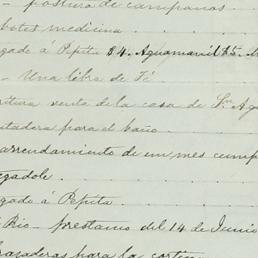 – postura de campanas
botes medicina
gado á Pepita 84.
– Una libra de Té
venta de la casa de Sn Ag
para el baño
arrendamiento de un mes cump
gadole
gado á Pepita
Rio – prestamo del 14 de Junio
para la cortina